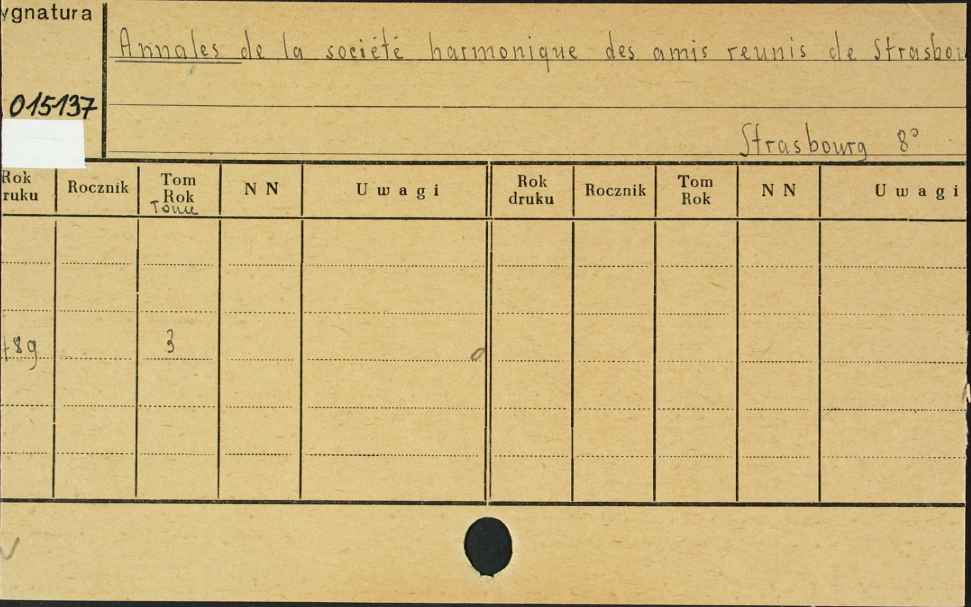 ygnatura
Annales de la société harmonique des amis reunis de Strasbou
015137
Strasbourg 8°
Rok druku Rocznik Tom Rok Tome N N Uwagi Rok druku Rocznik Tom Rok N N Uwagi
789 3